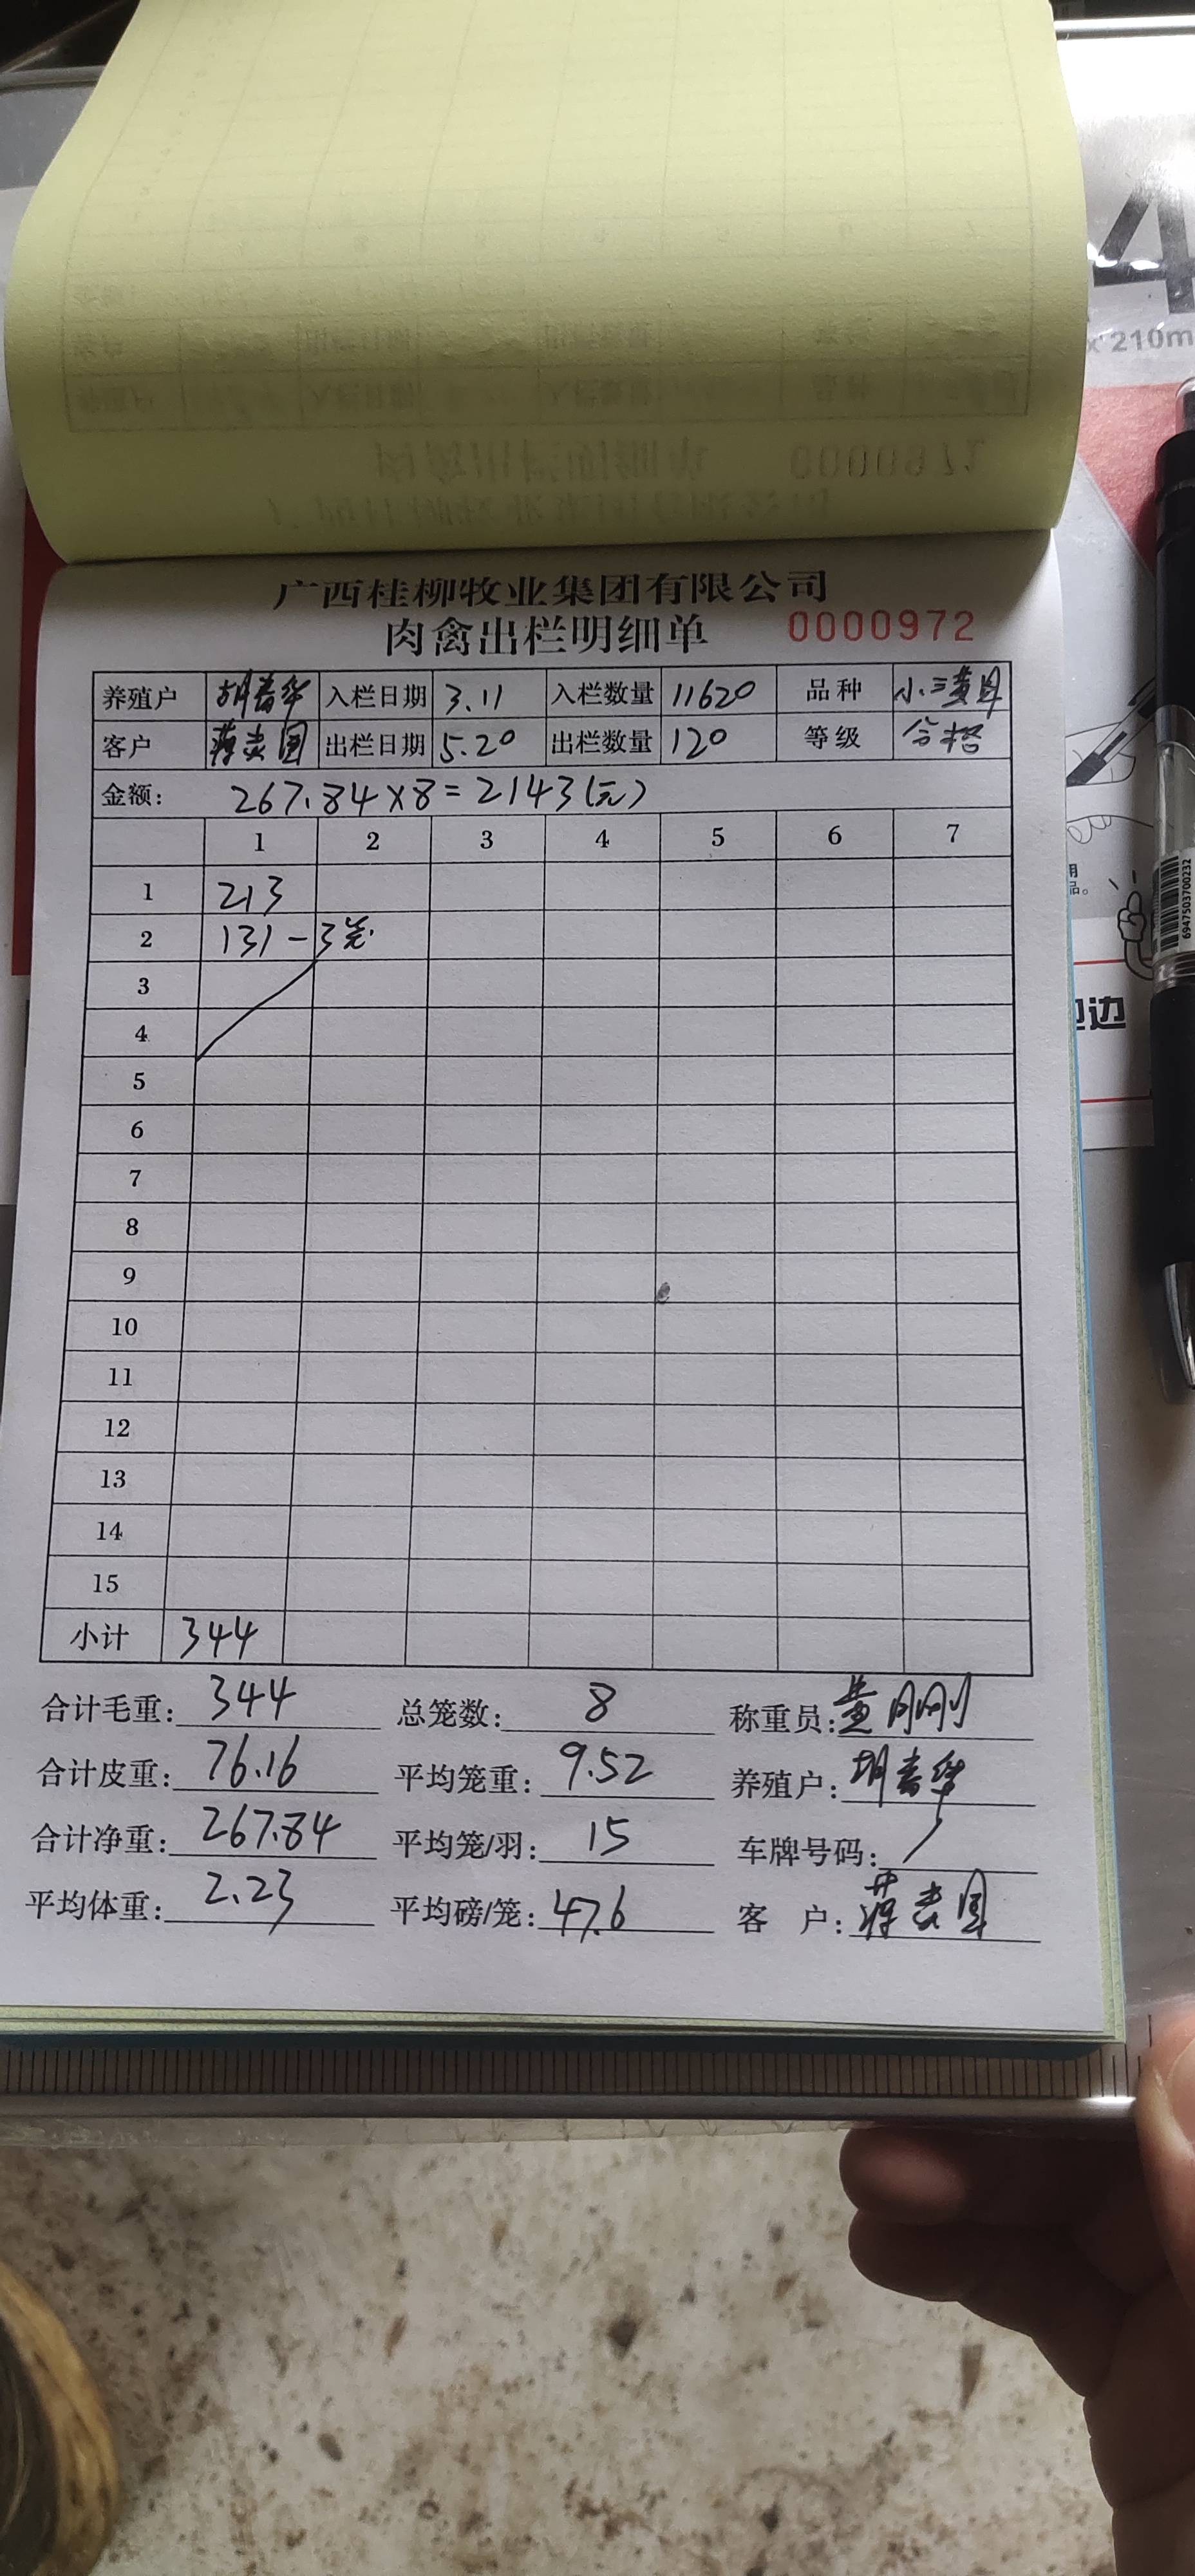 4
x 210m
0000971
广西桂柳牧业集团有限公司
肉禽出栏明细单 0000972
养殖户 胡春华 入栏日期 3.11 入栏数量 11620 品种 小三黄
客户 蒋 国 出栏日期 5.20 出栏数量 120 等级 合格
金额: 267.84×8=2143(元)
1 2 3 4 5 6 7
1 213
2 131-3笼.
3
4
5
6
7
8
9
10
11
12
13
14
15
小计 344
合计毛重: 344 总笼数: 8 称重员: 黄刚刚
合计皮重: 76.16 平均笼重: 9.52 养殖户: 胡春华
合计净重: 267.84 平均笼/羽: 15 车牌号码: /
平均体重: 2.23 平均磅/笼: 47.6 客 户: 蒋 国
6947503700232
边